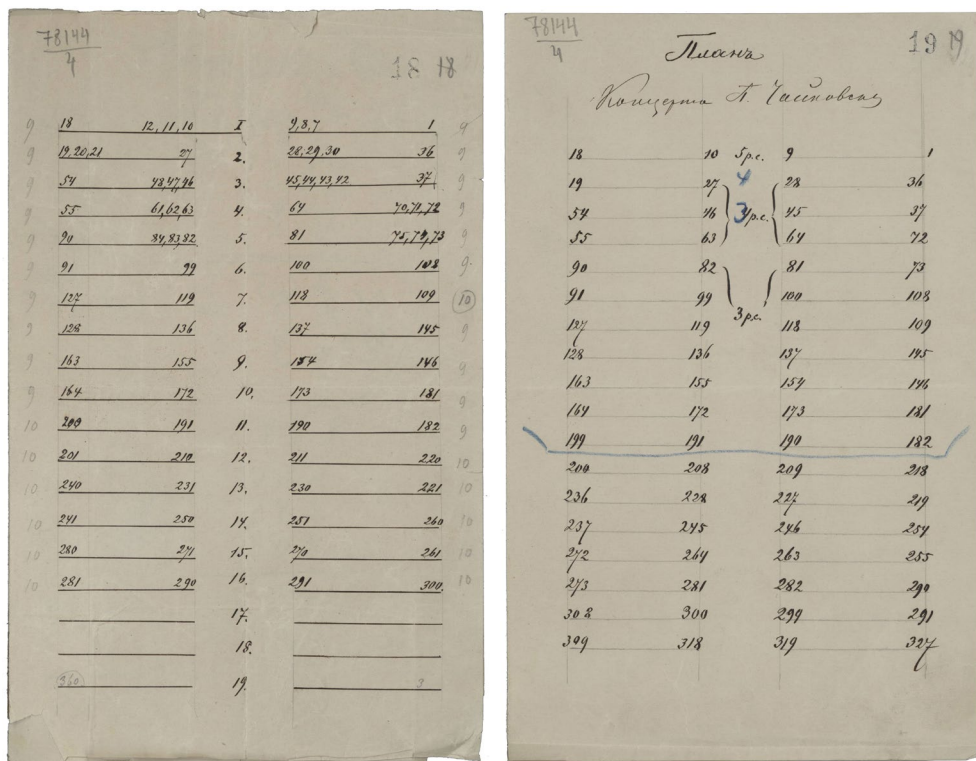 78144
4
13 18
9 18 12,11,10 I 9,8,7 1 9
9 19,20,21 27 2. 28,29,30 36 9
9 54 48,47,46 3. 45,44,43,42 37 9
9 55 61,62,63 4. 64 70,71,72 9
9 90 84,83,82 5. 81 75,74,73 9
9 91 99 6. 100 108 9.
9 127 119 7. 118 109 10
9 128 136 8. 137 145 9
9 163 155 9. 154 146 9
9 164 172 10. 173 181 9
10 200 191 11. 190 182 9
10 201 210 12. 211 220 10
10 240 231 13. 230 221 10
10 241 250 14. 251 260 10
10 280 271 15. 270 261 10
10 281 290 16. 291 300. 10
17.
18.
360 19.
78144
4
19 19
Планъ
Концерта П. Чайковскаго
18 10 5 р.с. 9 1
19 27 4 28 36
54 46 3 4 р.с. 45 37
55 63 64 72
90 82 81 73
91 99 100 108
3 р.с.
127 119 118 109
128 136 137 145
163 155 154 146
164 172 173 181
199 191 190 182
200 208 209 218
236 228 227 219
237 245 246 254
272 264 263 255
273 281 282 290
308 300 299 291
309 318 319 327